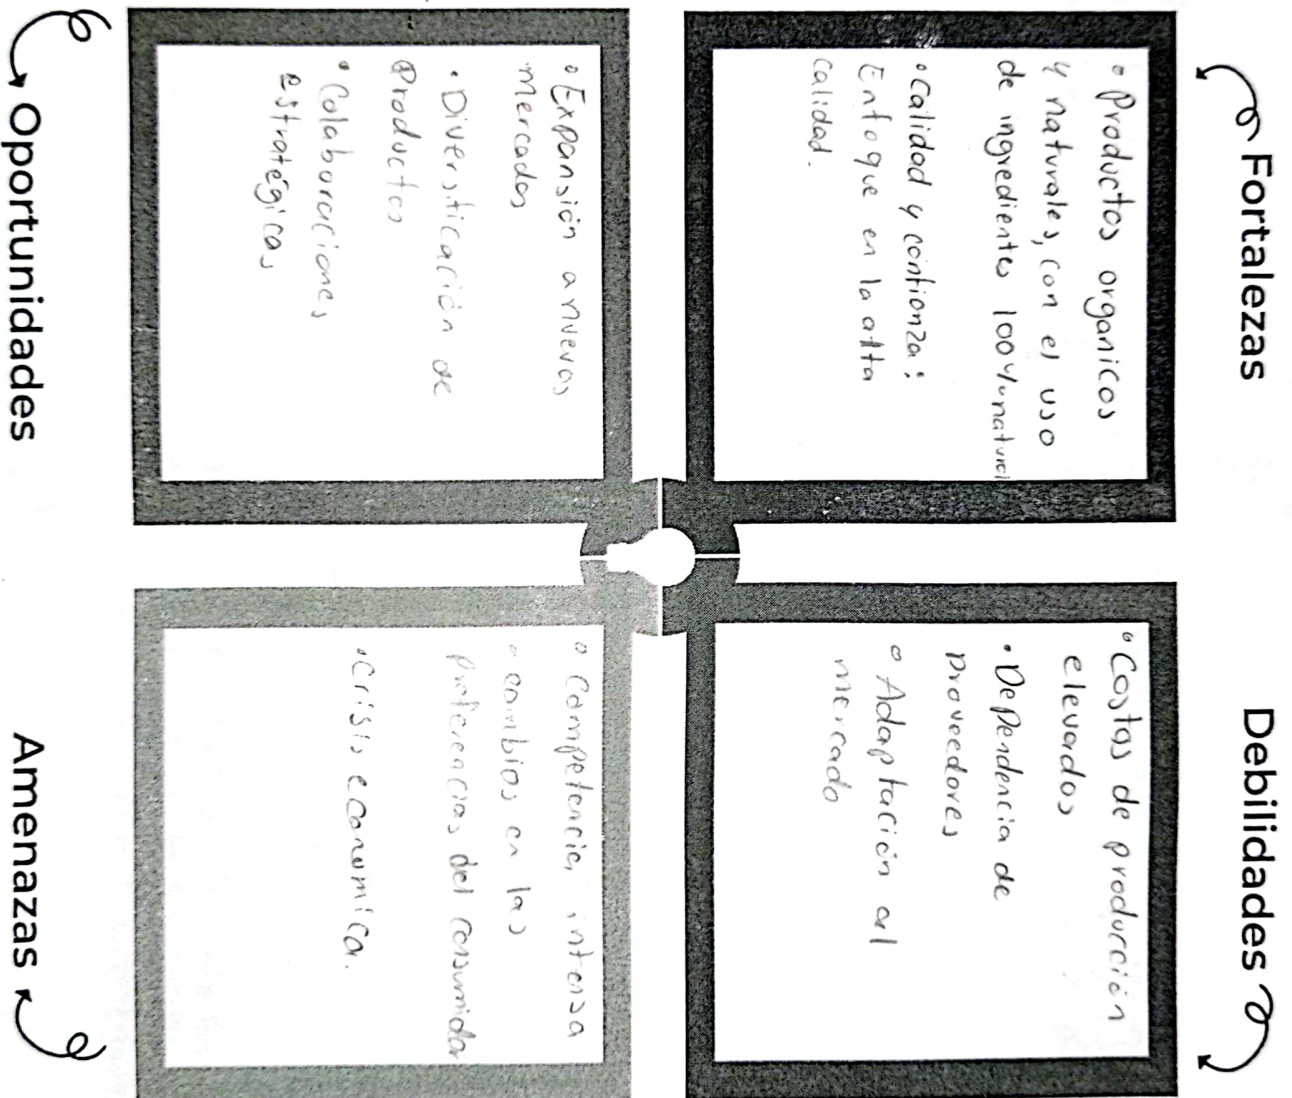 Fortalezas
• Productos organicos
y naturales, con el uso
de ingredientes 100% natural
• Calidad y confianza:
Enfoque en la alta
calidad.
Debilidades
• Costos de producción
elevados
• Dependencia de
proveedores
• Adaptación al
mercado
Oportunidades
• Expansión a nuevos
mercados
• Diversificación de
Productos
• Colaboraciones
estratégicas
Amenazas
• Competencia intensa
• cambios en las
preferencias del consumidor
• Crisis economica.